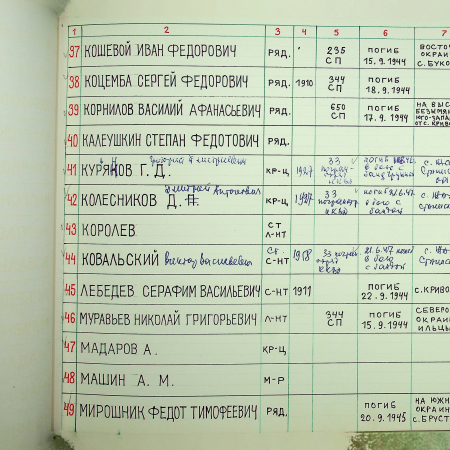 1 2 3 4 5 6 7
37 КОШЕВОЙ ИВАН ФЕДОРОВИЧ РЯД. 235 СП ПОГИБ 15.9.1944 ВОСТОЧ ОКРАИ С. БУКО
38 КОЦЕМБА СЕРГЕЙ ФЕДОРОВИЧ РЯД. 1910 344 СП ПОГИБ 18.9.1944
39 КОРНИЛОВ ВАСИЛИЙ АФАНАСЬЕВИЧ РЯД. 650 СП ПОГИБ 17.9.1944 НА ВЫС БЕЗЫМЯН ЮГО-ЗАПА ОТ С. КРИВО
40 КАЛЕУШКИН СТЕПАН ФЕДОТОВИЧ РЯД.
41 КУРЯНОВ Г. Д. КР-Ц 1927 33 погиб в бою с
42 КОЛЕСНИКОВ Д. Дмитрий Антонович КР-Ц 1927 33 погиб в бою с
43 КОРОЛЕВ СТ Л-НТ
44 КОВАЛЬСКИЙ Виктор Васильевич Ст. С-НТ 1918 33 21.6.47 в бою с
45 ЛЕБЕДЕВ СЕРАФИМ ВАСИЛЬЕВИЧ С-НТ 1911 ПОГИБ 22.9.1944 С. КРИВО
46 МУРАВЬЕВ НИКОЛАЙ ГРИГОРЬЕВИЧ Л-НТ 344 СП ПОГИБ 15.9.1944 СЕВЕРО ОКРАИ ИЛЬЦЫ
47 МАДАРОВ А. КР-Ц
48 МАШИН А. М. М-Р
49 МИРОШНИК ФЕДОТ ТИМОФЕЕВИЧ РЯД. ПОГИБ 20.9.1945 НА ЮЖН ОКРАИН С. БРУСТ